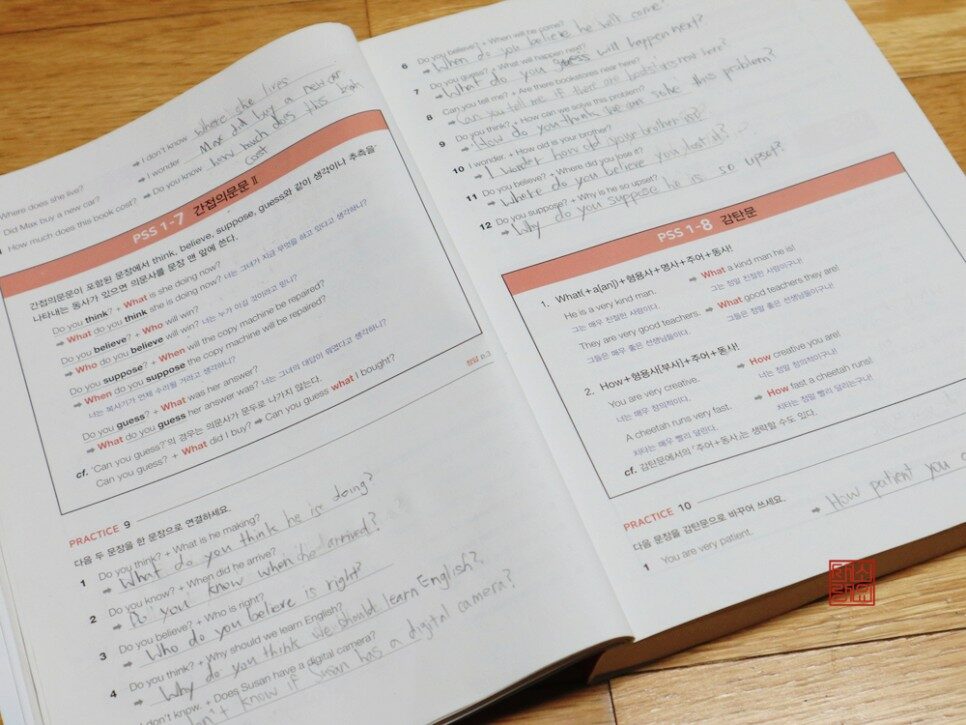 Where does she live?
→ I don't know where she lives
Did Max buy a new car?
→ I wonder Max did buy a new car
How much does this book cost?
→ Do you know how much does this book
cost
PSS 1-7 간접의문문 II
간접의문문이 포함된 문장에서 think, believe, suppose, guess와 같이 생각이나 추측을
나타내는 동사가 있으면 의문사를 문장 맨 앞에 쓴다.
Do you think? + What is she doing now?
→ What do you think she is doing now? 너는 그녀가 지금 무엇을 하고 있다고 생각하니?
Do you believe? + Who will win?
→ Who do you believe will win? 너는 누가 이길 것이라고 믿니?
Do you suppose? + When will the copy machine be repaired?
→ When do you suppose the copy machine will be repaired?
나는 복사기가 언제 수리될 거라고 생각하니?
Do you guess? + What was her answer?
→ What do you guess her answer was? 너는 그녀의 대답이 뭐였다고 생각하니?
cf. 'Can you guess?'의 경우는 의문사가 문두로 나가지 않는다.
Can you guess? + What did I buy? → Can you guess what I bought?
정답 p.3
PRACTICE 9
다음 두 문장을 한 문장으로 연결하세요.
1 Do you think? + What is he making?
→ What do you think he is doing?
2 Do you know? + When did he arrive?
→ Do you know when he arrived?
3 Do you believe? + Who is right?
→ Who do you believe is right?
4 Do you think? + Why should we learn English?
→ Why do you think we should learn English?
I don't know. + Does Susan have a digital camera?
know if Susan has a digital camera?
6 Do you believe? + When will he come?
→ When do you believe he will come?
7 Do you guess? + What will happen next?
→ What do you guess will happen next?
8 Can you tell me? + Are there bookstores near here?
→ Can you tell me if there are bookstores near here?
9 Do you think? + How can we solve this problem?
→ How do you think we can solve this problem?
10 I wonder. + How old is your brother?
→ I wonder how old your brother is?
11 Do you believe? + Where did you lose it?
→ Where do you believe you lost it?
12 Do you suppose? + Why is he so upset?
→ Why do you suppose he is so upset?
PSS 1-8 감탄문
1. What(+a[an])+형용사+명사+주어+동사!
He is a very kind man. → What a kind man he is!
그는 매우 친절한 사람이다. 그는 정말 친절한 사람이구나!
They are very good teachers. → What good teachers they are!
그들은 매우 좋은 선생님들이다. 그들은 정말 좋은 선생님들이구나!
2. How+형용사[부사]+주어+동사!
You are very creative. → How creative you are!
너는 매우 창의적이다. 너는 정말 창의적이구나!
A cheetah runs very fast. → How fast a cheetah runs!
치타는 매우 빨리 달린다. 치타는 정말 빨리 달리는구나!
cf. 감탄문에서의 '주어+동사'는 생략할 수도 있다.
PRACTICE 10
다음 문장을 감탄문으로 바꾸어 쓰세요.
1 You are very patient. → How patient you